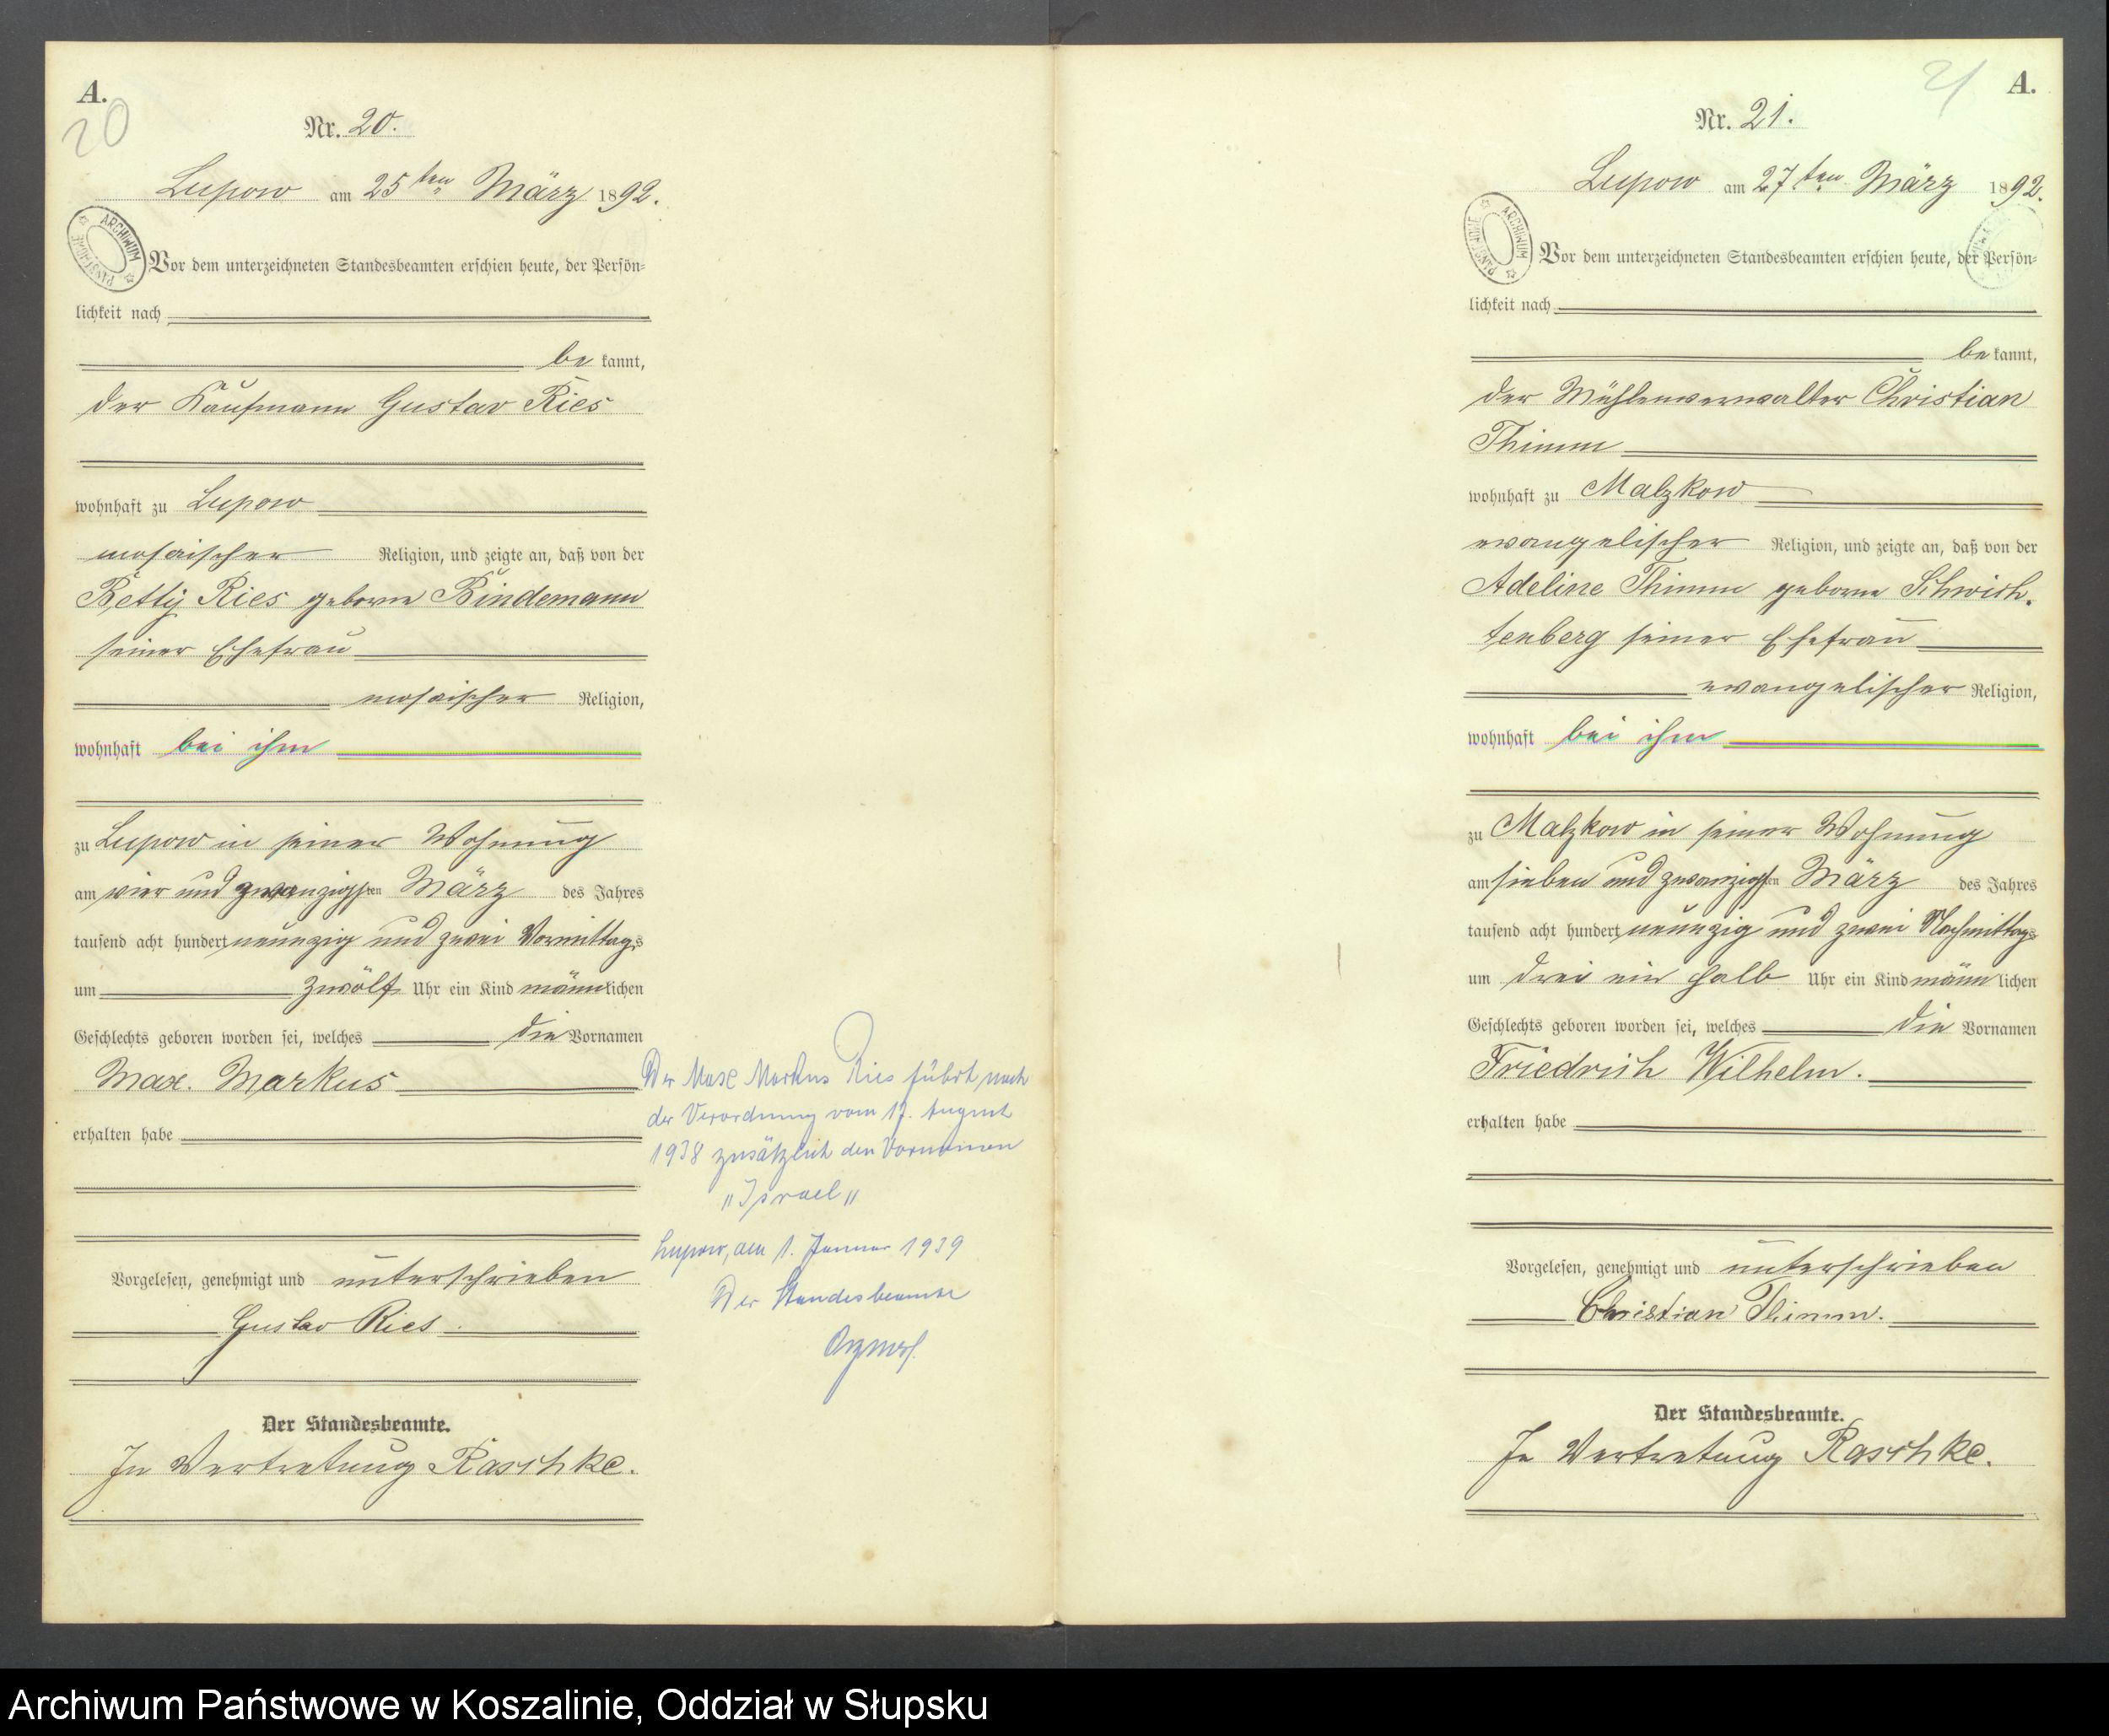 A.
20
Nr. 20.
Lupow am 25ten März 1892.
ARCHIWUM PAŃSTWOWE
Vor dem unterzeichneten Standesbeamten erschien heute, der Persön=
lichkeit nach
be kannt,
der Kaufmann Gustav Ries
wohnhaft zu Lupow
mosaischer Religion, und zeigte an, daß von der
Betty Ries geborne Bindemann
seiner Ehefrau
mosaischer Religion,
wohnhaft bei ihm
zu Lupow in seiner Wohnung
am vier und zwanzigsten März des Jahres
tausend acht hundert neunzig und zwei Vormittags
um zwölf Uhr ein Kind männlichen
Geschlechts geboren worden sei, welches die Vornamen
Max. Markus
erhalten habe
Vorgelesen, genehmigt und unterschrieben
Gustav Ries.
Der Standesbeamte.
In Vertretung Raschke.
Der Max Markus Ries führt nach
der Verordnung vom 17. August
1938 zusätzlich den Vornamen
"Israel"
Lupow, am 1. Januar 1939
Der Standesbeamte
21
A.
Nr. 21.
Lupow am 27ten März 1892.
ARCHIWUM PAŃSTWOWE
Vor dem unterzeichneten Standesbeamten erschien heute, der Persön=
lichkeit nach
be kannt,
der Mühlenverwalter Christian
Thimm
wohnhaft zu Malzkow
evangelischer Religion, und zeigte an, daß von der
Adeline Thimm geborne Schwich-
tenberg seiner Ehefrau
evangelischer Religion,
wohnhaft bei ihm
zu Malzkow in seiner Wohnung
am sieben und zwanzigsten März des Jahres
tausend acht hundert neunzig und zwei Nachmittags
um drei ein halb Uhr ein Kind männlichen
Geschlechts geboren worden sei, welches die Vornamen
Friedrich Wilhelm.
erhalten habe
Vorgelesen, genehmigt und unterschrieben
Christian Thimm.
Der Standesbeamte.
In Vertretung Raschke.
Archiwum Państwowe w Koszalinie, Oddział w Słupsku